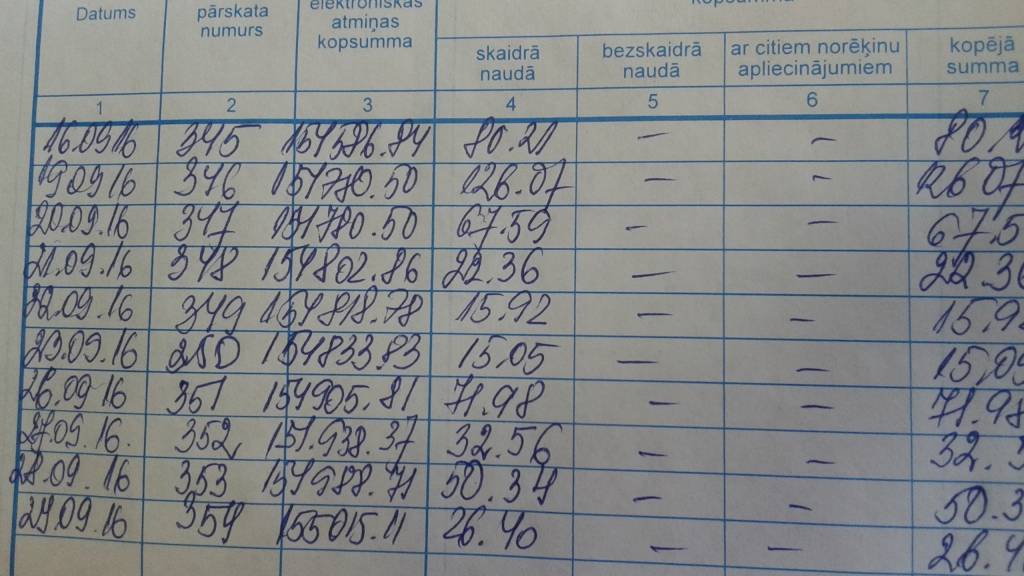 Datums pārskata numurs elektroniskās atmiņas kopsumma kopsumma
skaidrā naudā bezskaidrā naudā ar citiem norēķinu apliecinājumiem kopējā summa
1 2 3 4 5 6 7
16.09.16 345 154586.84 80.21 — —
19.09.16 346 126.07 — — 126.07
20.09.16 347 154780.50 67.59 — — 67.5
21.09.16 348 154802.86 22.36 — — 22.36
22.09.16 349 154818.78 15.92 — — 15.92
23.09.16 250 154833.83 15.05 — — 15.05
26.09.16 351 154905.81 71.98 — — 71.98
27.09.16. 352 154.938.37 32.56 — — 32.5
28.09.16 353 154988.71 50.34 — — 50.3
29.09.16 354 155015.11 26.40 — — 26.4